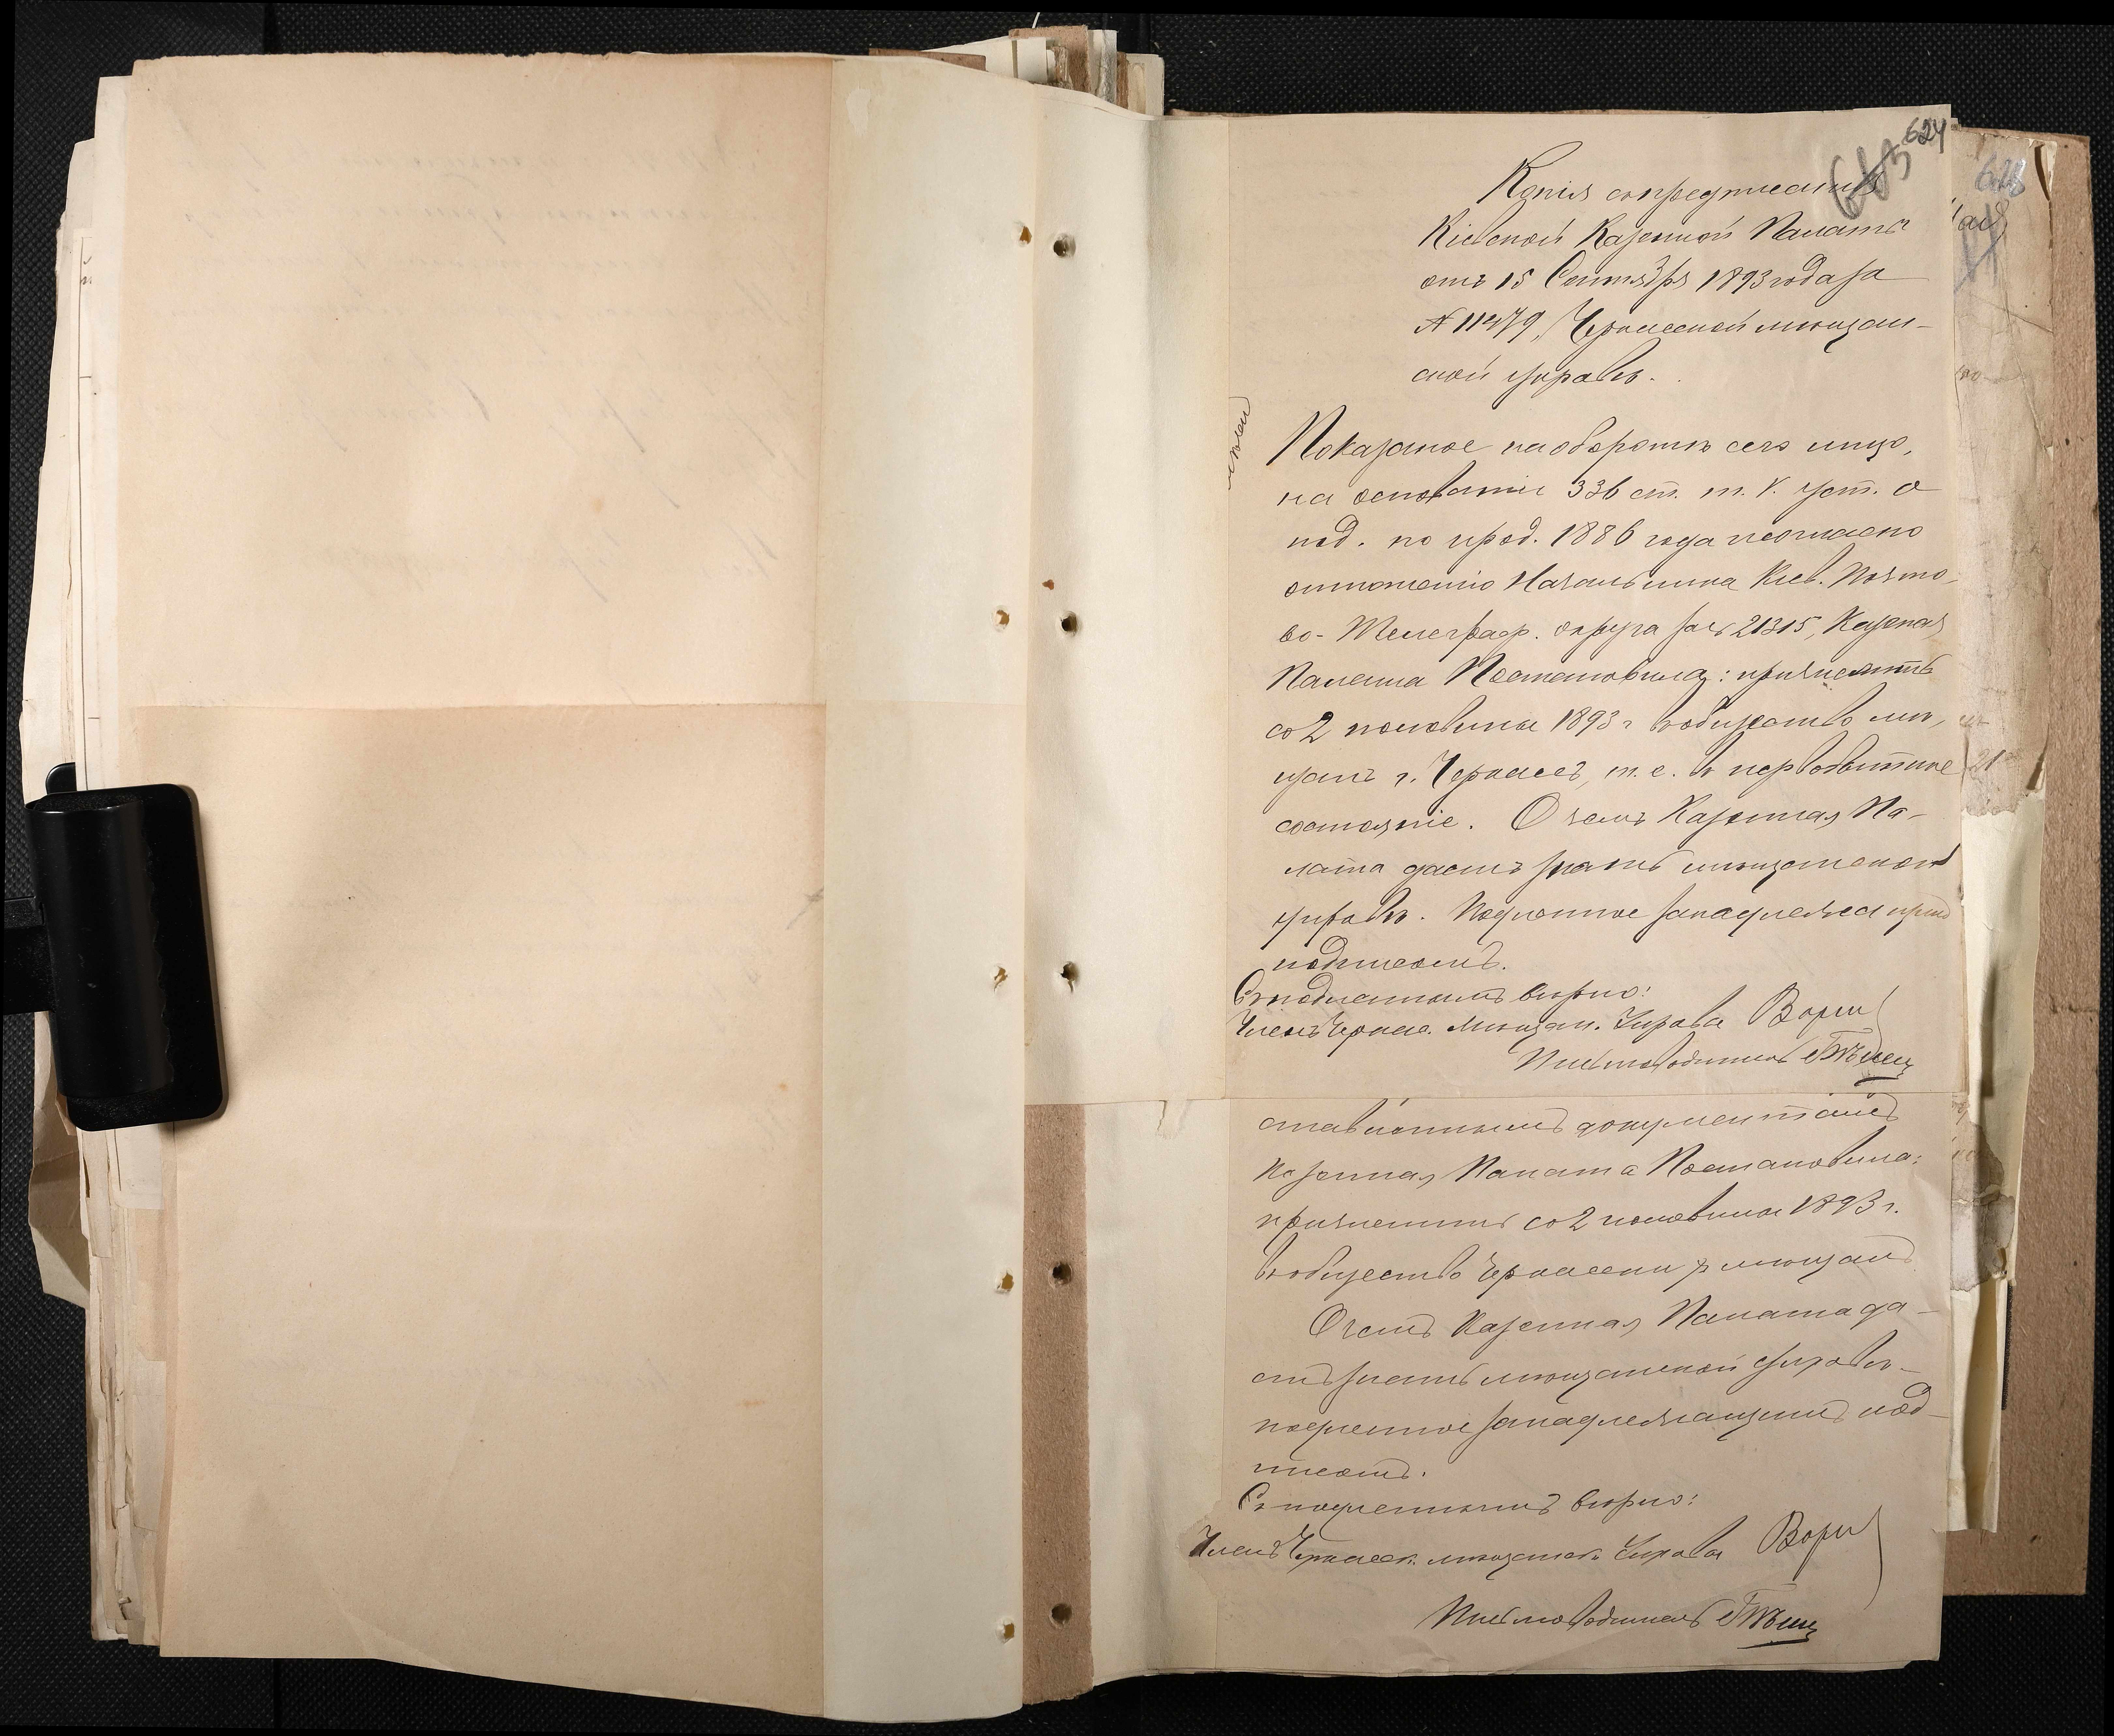 624
623
Копія съ предписанія
Кіевской Казенной Палаты
отъ 15 Сентября 1893 года за
№ 11479, Черкасской мѣщан-
ской управѣ.
Показаное на оборотѣ сего лицо,
на основаніи 336 ст. т. V. уст. о
под. по прод. 1886 года и согласно
отношенію Начальника Кіев. Почто-
во-Телеграф. округа за № 21315, Казеная
Палата Постановила: причислить
со 2 половины 1893 г. въ общество мѣ-
щанъ г. Черкасъ, т. е. въ первобытное
состояніе. О чемъ Казенная Па-
лата даетъ знать мѣщанской
управѣ. Подлинное за надлежа
подписомъ.
Съ подлиннымъ вѣрно:
Членъ Черкас. Мѣщан. Управы
Письмоводитель
ставленнымъ документамъ
Казенная Палата Постановила:
причислить со 2 половины 1893 г.
въ общество Черкасскихъ мѣщанъ
О чемъ Казенная Палата да-
етъ знать мѣщанской управѣ-
подлинное за надлежащимъ под-
писомъ.
Съ подлиннымъ вѣрно:
Членъ Черкасск. мѣщанск. Управы
Письмоводитель
628
21